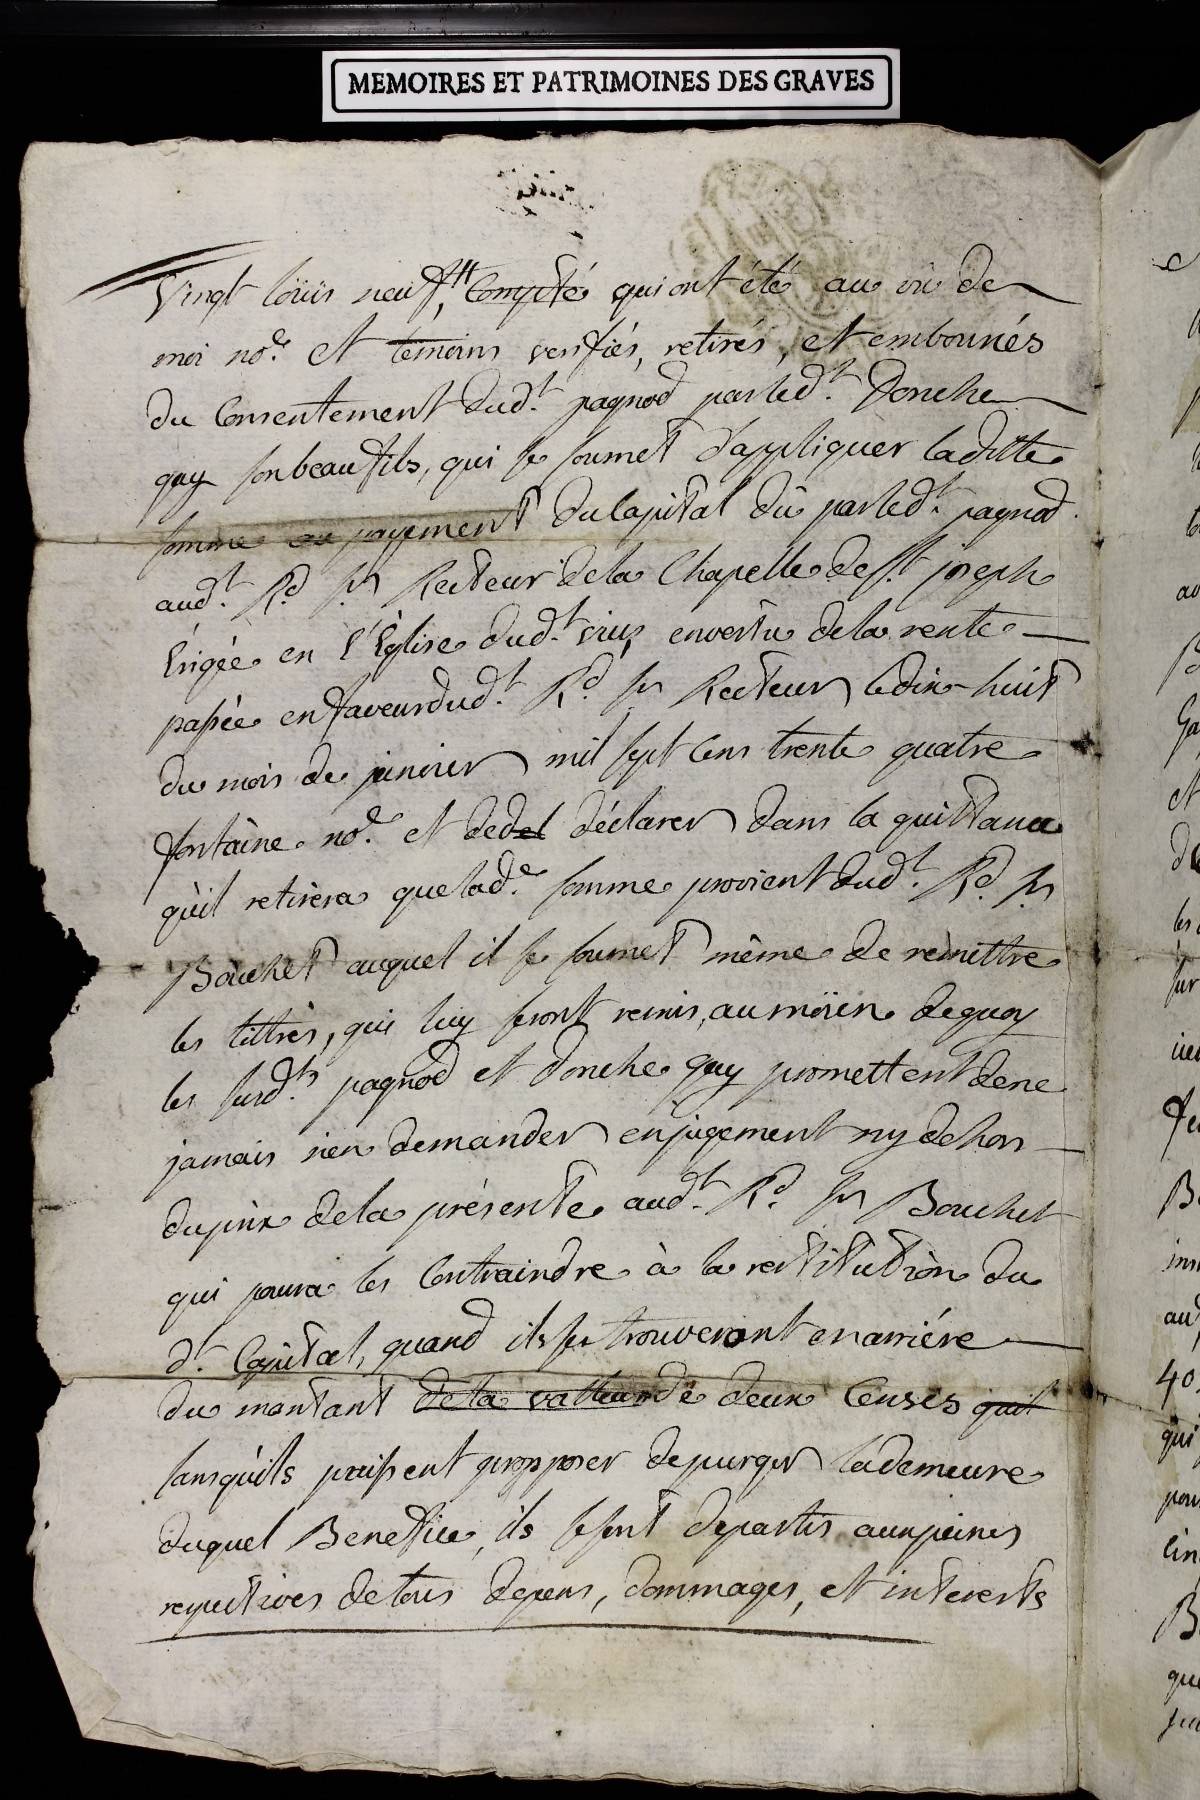 MEMOIRES ET PATRIMOINES DES GRAVES
Vingt loüis neuf, compté qui ont été au vû de
moi no.e et témoins verifiés, retirés, et emboursés
du Consentement dud.t pagnod par led.t Donche
gay son beau fils, qui se soumet d'appliquer laditte
somme au payement du Capital dû par led.t pagnod
aud.t R.d s.r Recteur de la Chapelle de s.t joseph
Erigée en l'Eglise dud.t en vertu de la rente
passée en faveur dud.t R.d s.r Recteur le dix-huit
du mois de janvier mil sept cens trente quatre
fontaine no.e et de del déclarer dans la quittance
qu'il retirera que lad.e somme provient dud.t R.d s.r
Bouchet auquel il se soumet même de remettre
les tittres, qui luy seront remis, au moïen de quoy
les susd.ts pagnod et donche gay promettent de ne
jamais rien demander en jugement ny dehors
du prix de la présente aud.t R.d s.r Bouchet
qui poura les Contraindre à la restitution du
d.t Capital, quand ils se trouveront en arriére
du montant de la valleur de deux Censes quil
sans qu'ils puissent propposer de purger la demeure
duquel Benefice, ils se sont departis aux peines
respectives de tous depens, dommages, et interests
40
qui